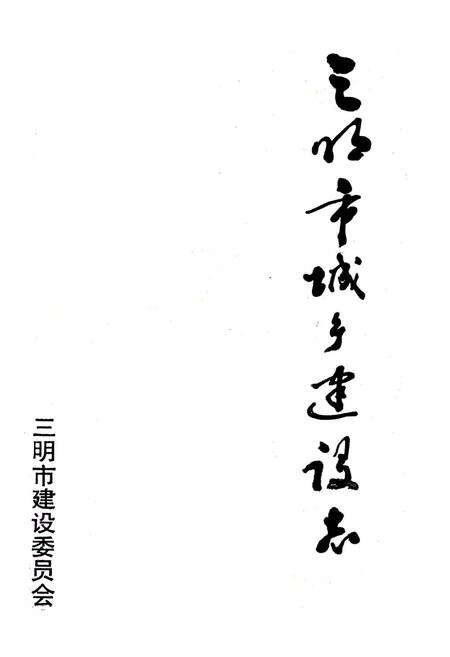 三明市城乡建设志
三明市建设委员会